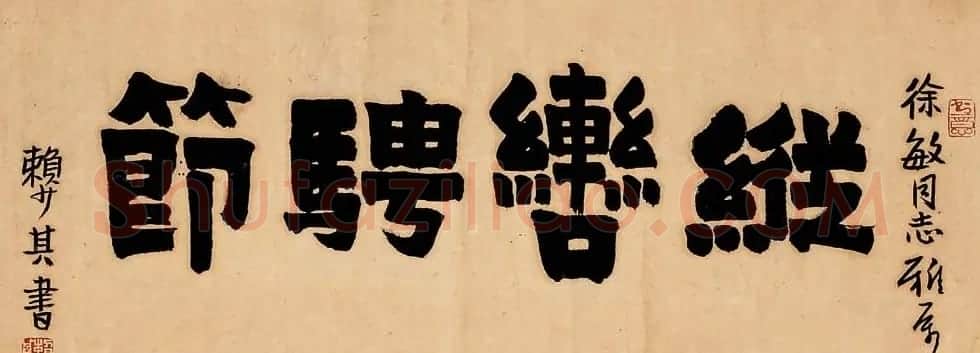 徐敏同志雅属
縱轡騁節
賴少其書
Shufaziliao.COM